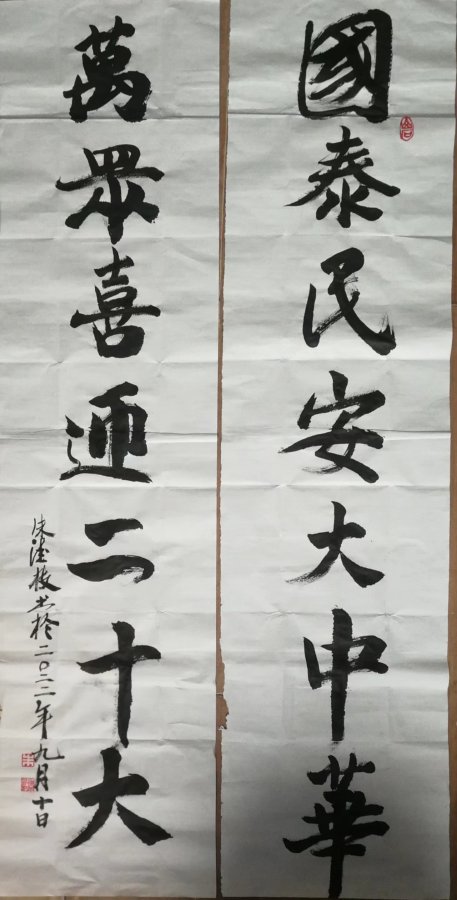 國泰民安大中華
萬眾喜迎二十大
書於二〇二二年九月十日